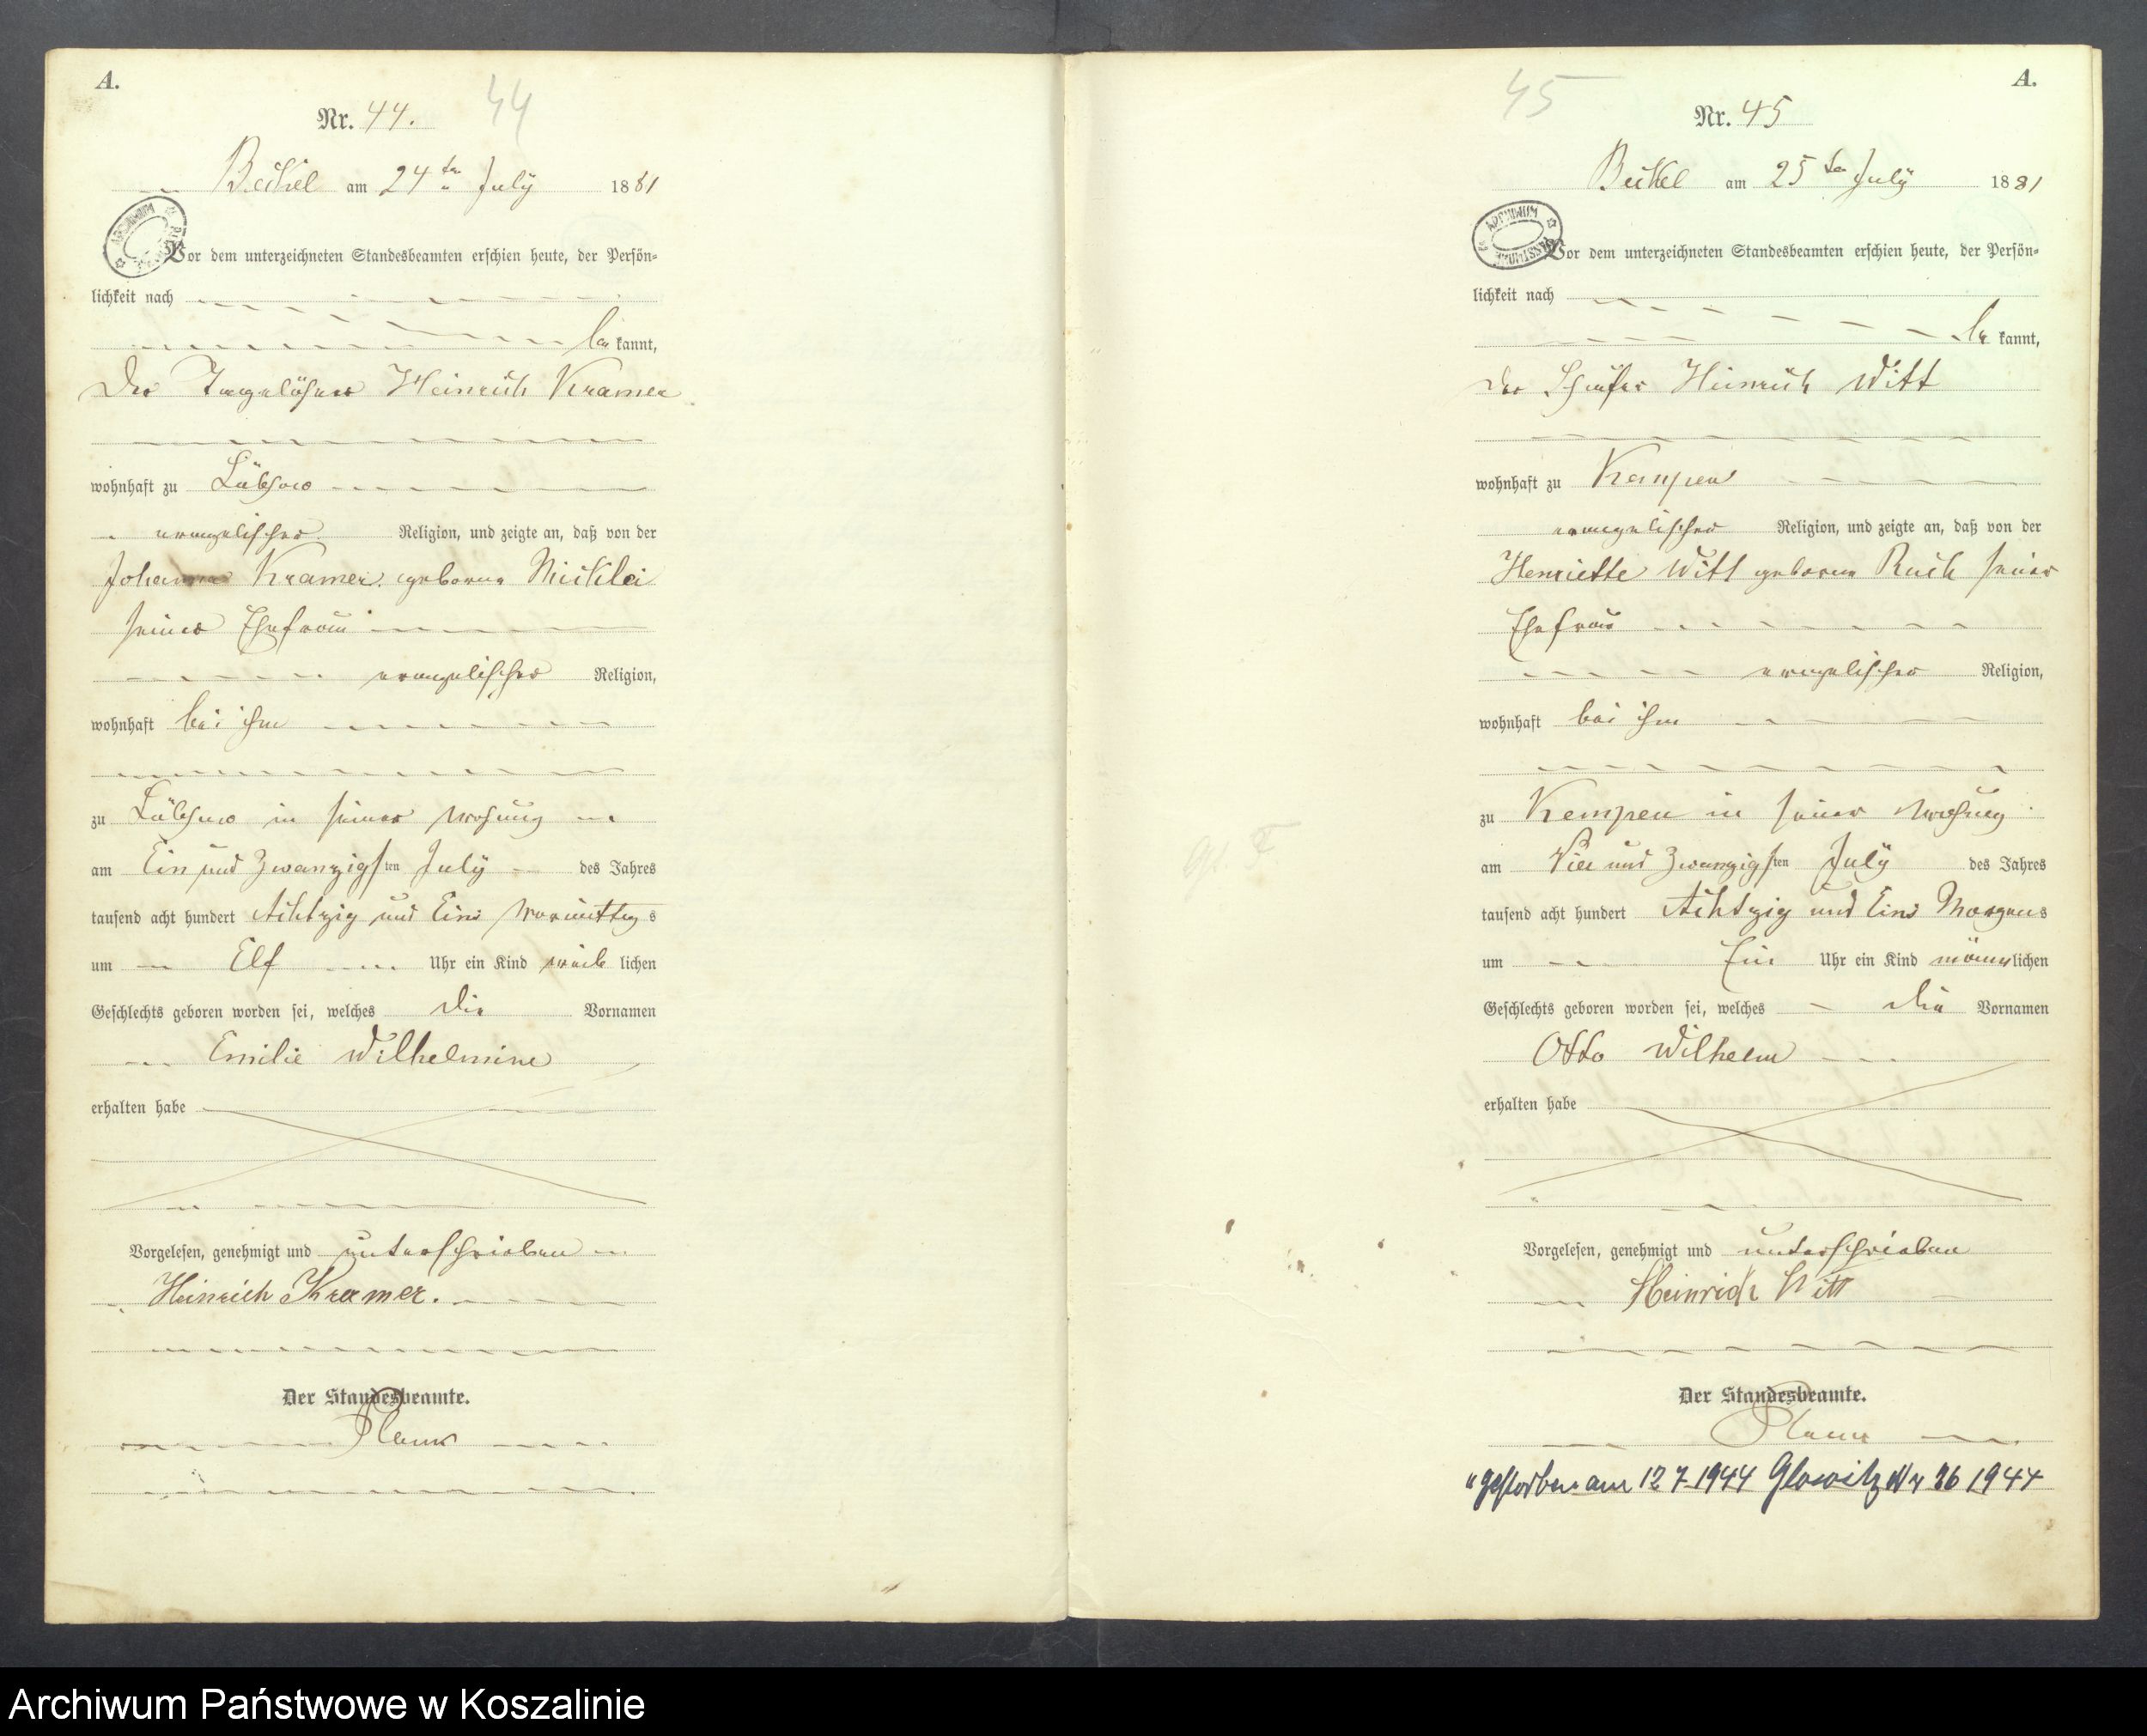 A.
Nr. 44.
44
Beckel am 24ten July 1881
ARCHIWUM
Vor dem unterzeichneten Standesbeamten erschien heute, der Persön=
lichkeit nach
be kannt,
Der Tagelöhner Heinrich Kramer
wohnhaft zu Lübzow
evangelischer Religion, und zeigte an, daß von der
Johanna Kramer geborne
seiner Ehefrau
evangelischer Religion,
wohnhaft bei ihm
zu Lübzow in seiner Wohnung
am Ein und Zwanzigsten July des Jahres
tausend acht hundert Achtzig und Eins Vormittags
um Elf Uhr ein Kind weiblichen
Geschlechts geboren worden sei, welches die Vornamen
Emilie Wilhelmine
erhalten habe
Vorgelesen, genehmigt und unterschrieben
Heinrich Kramer.
Der Standesbeamte.
A.
45
Nr. 45
Beckel am 25ten July 1881
ARCHIWUM
Vor dem unterzeichneten Standesbeamten erschien heute, der Persön=
lichkeit nach
be kannt,
Der Schäfer Heinrich Witt
wohnhaft zu Kempen
evangelischer Religion, und zeigte an, daß von der
Henriette Witt geborne Ruch seiner
Ehefrau
evangelischer Religion,
wohnhaft bei ihm
zu Kempen in seiner Wohnung
am Vier und Zwanzigsten July des Jahres
tausend acht hundert Achtzig und Eins Morgens
um Ein Uhr ein Kind männlichen
Geschlechts geboren worden sei, welches die Vornamen
Otto Wilhelm
erhalten habe
Vorgelesen, genehmigt und unterschrieben
Heinrich Witt
Der Standesbeamte.
gestorben am 12 7 1944 Glowitz Nr 26 1944
Archiwum Państwowe w Koszalinie